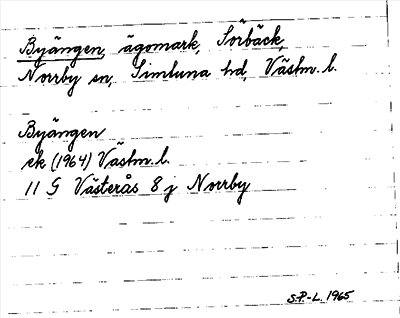 Byängen, ägomark, Sörbäck,
Norrby sn, Simtuna hd, Västm. l.
Byängen
ek (1964) Västm. l.
11 G Västerås 8 j Norrby
S.P-L. 1965